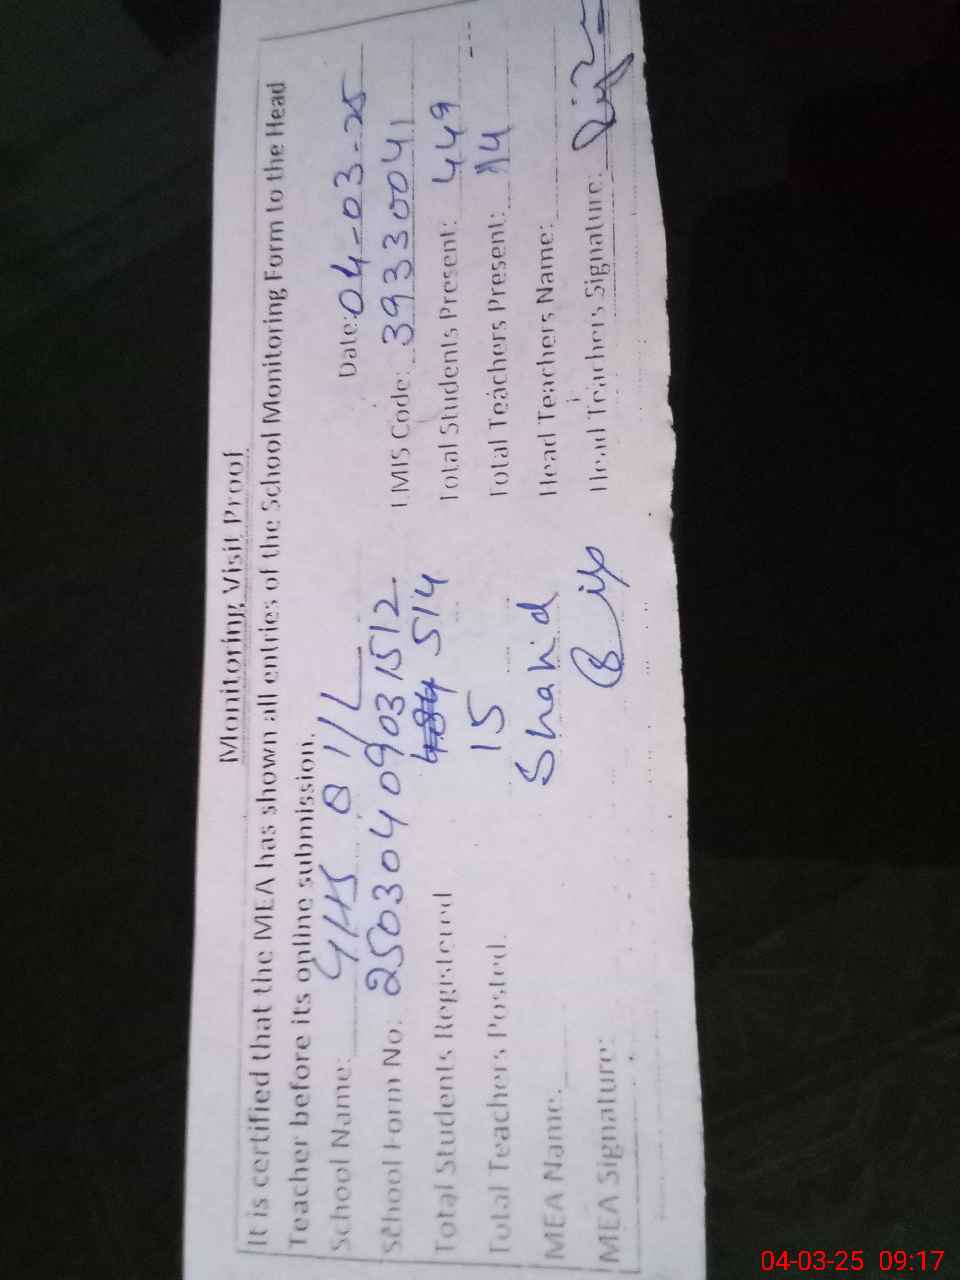 Monitoring Visit Proof
It is certified that the MEA has shown all entries of the School Monitoring Form to the Head
Teacher before its online submission.
School Name: GHS 8 1/L Date: 04-03-25
School Form No: 2503040903 1512 EMIS Code: 39330041
Total Students Registered 484 514 Total Students Present: 449
Total Teachers Posted. 15 Total Teachers Present: 14
MEA Name. Shahid Head Teachers Name:
MEA Signature: Head Teachers Signature:
04-03-25 09:17